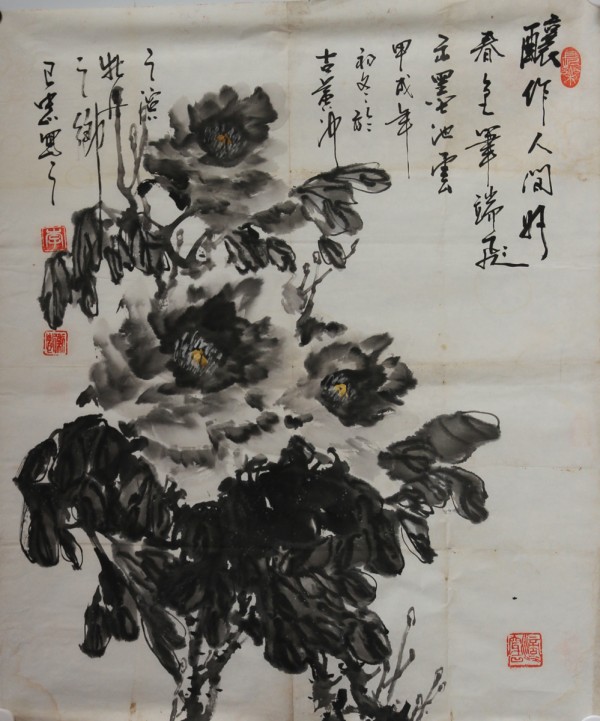 釀作人間好
春色筆端飛
出墨池雲
甲戌年
初冬於
古黃河
之濱
牡丹
之鄉
寫之